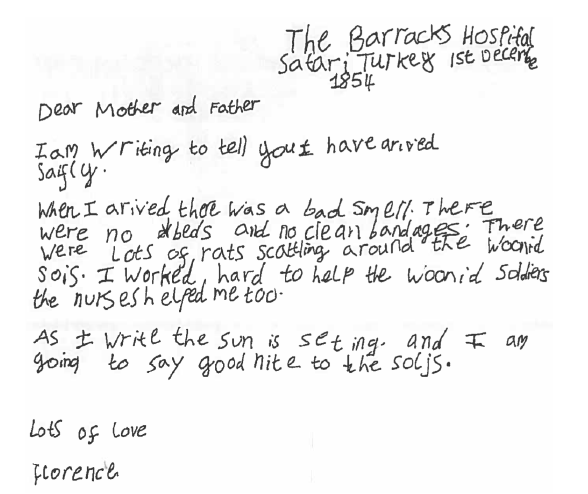 The Barracks Hospital
Satari Turkey 1st Decembe
1854
Dear Mother and Father
I am Writing to tell you I have arived
Saifly.
When I arived there was a bad smell. There
were no beds and no clean bandages. There
were Lots of rats scattling around the woonid
Sojs. I worked hard to help the woonid Soldiers
the nurses helped me too.
As I write the sun is seting. and I am
going to say good nite to the soljs.
Lots of love
Florence